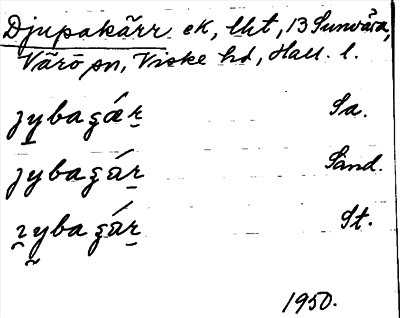 Djupakärr ek, lht, 13 Sunvära,
Värö sn, Viske hd, Hall. l.
ȷybagǽr Sa.
ȷybagár Sand.
ȷybagár St.
1950.